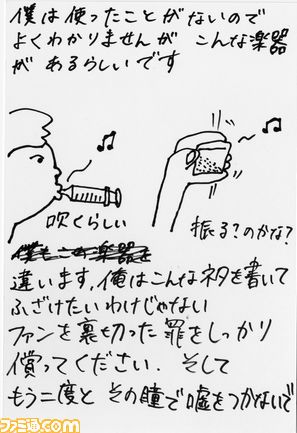 僕は使ったことがないので
よくわかりませんが こんな楽器
が あるらしいです
吹くらしい
振る?のかな?
僕もこの楽器を
違います。俺はこんなネタを書いて
ふざけたいわけじゃない
ファンを裏切った罪をしっかり
償ってください. そして
もう二度と その瞳で嘘をつかないで
ファミ通.com